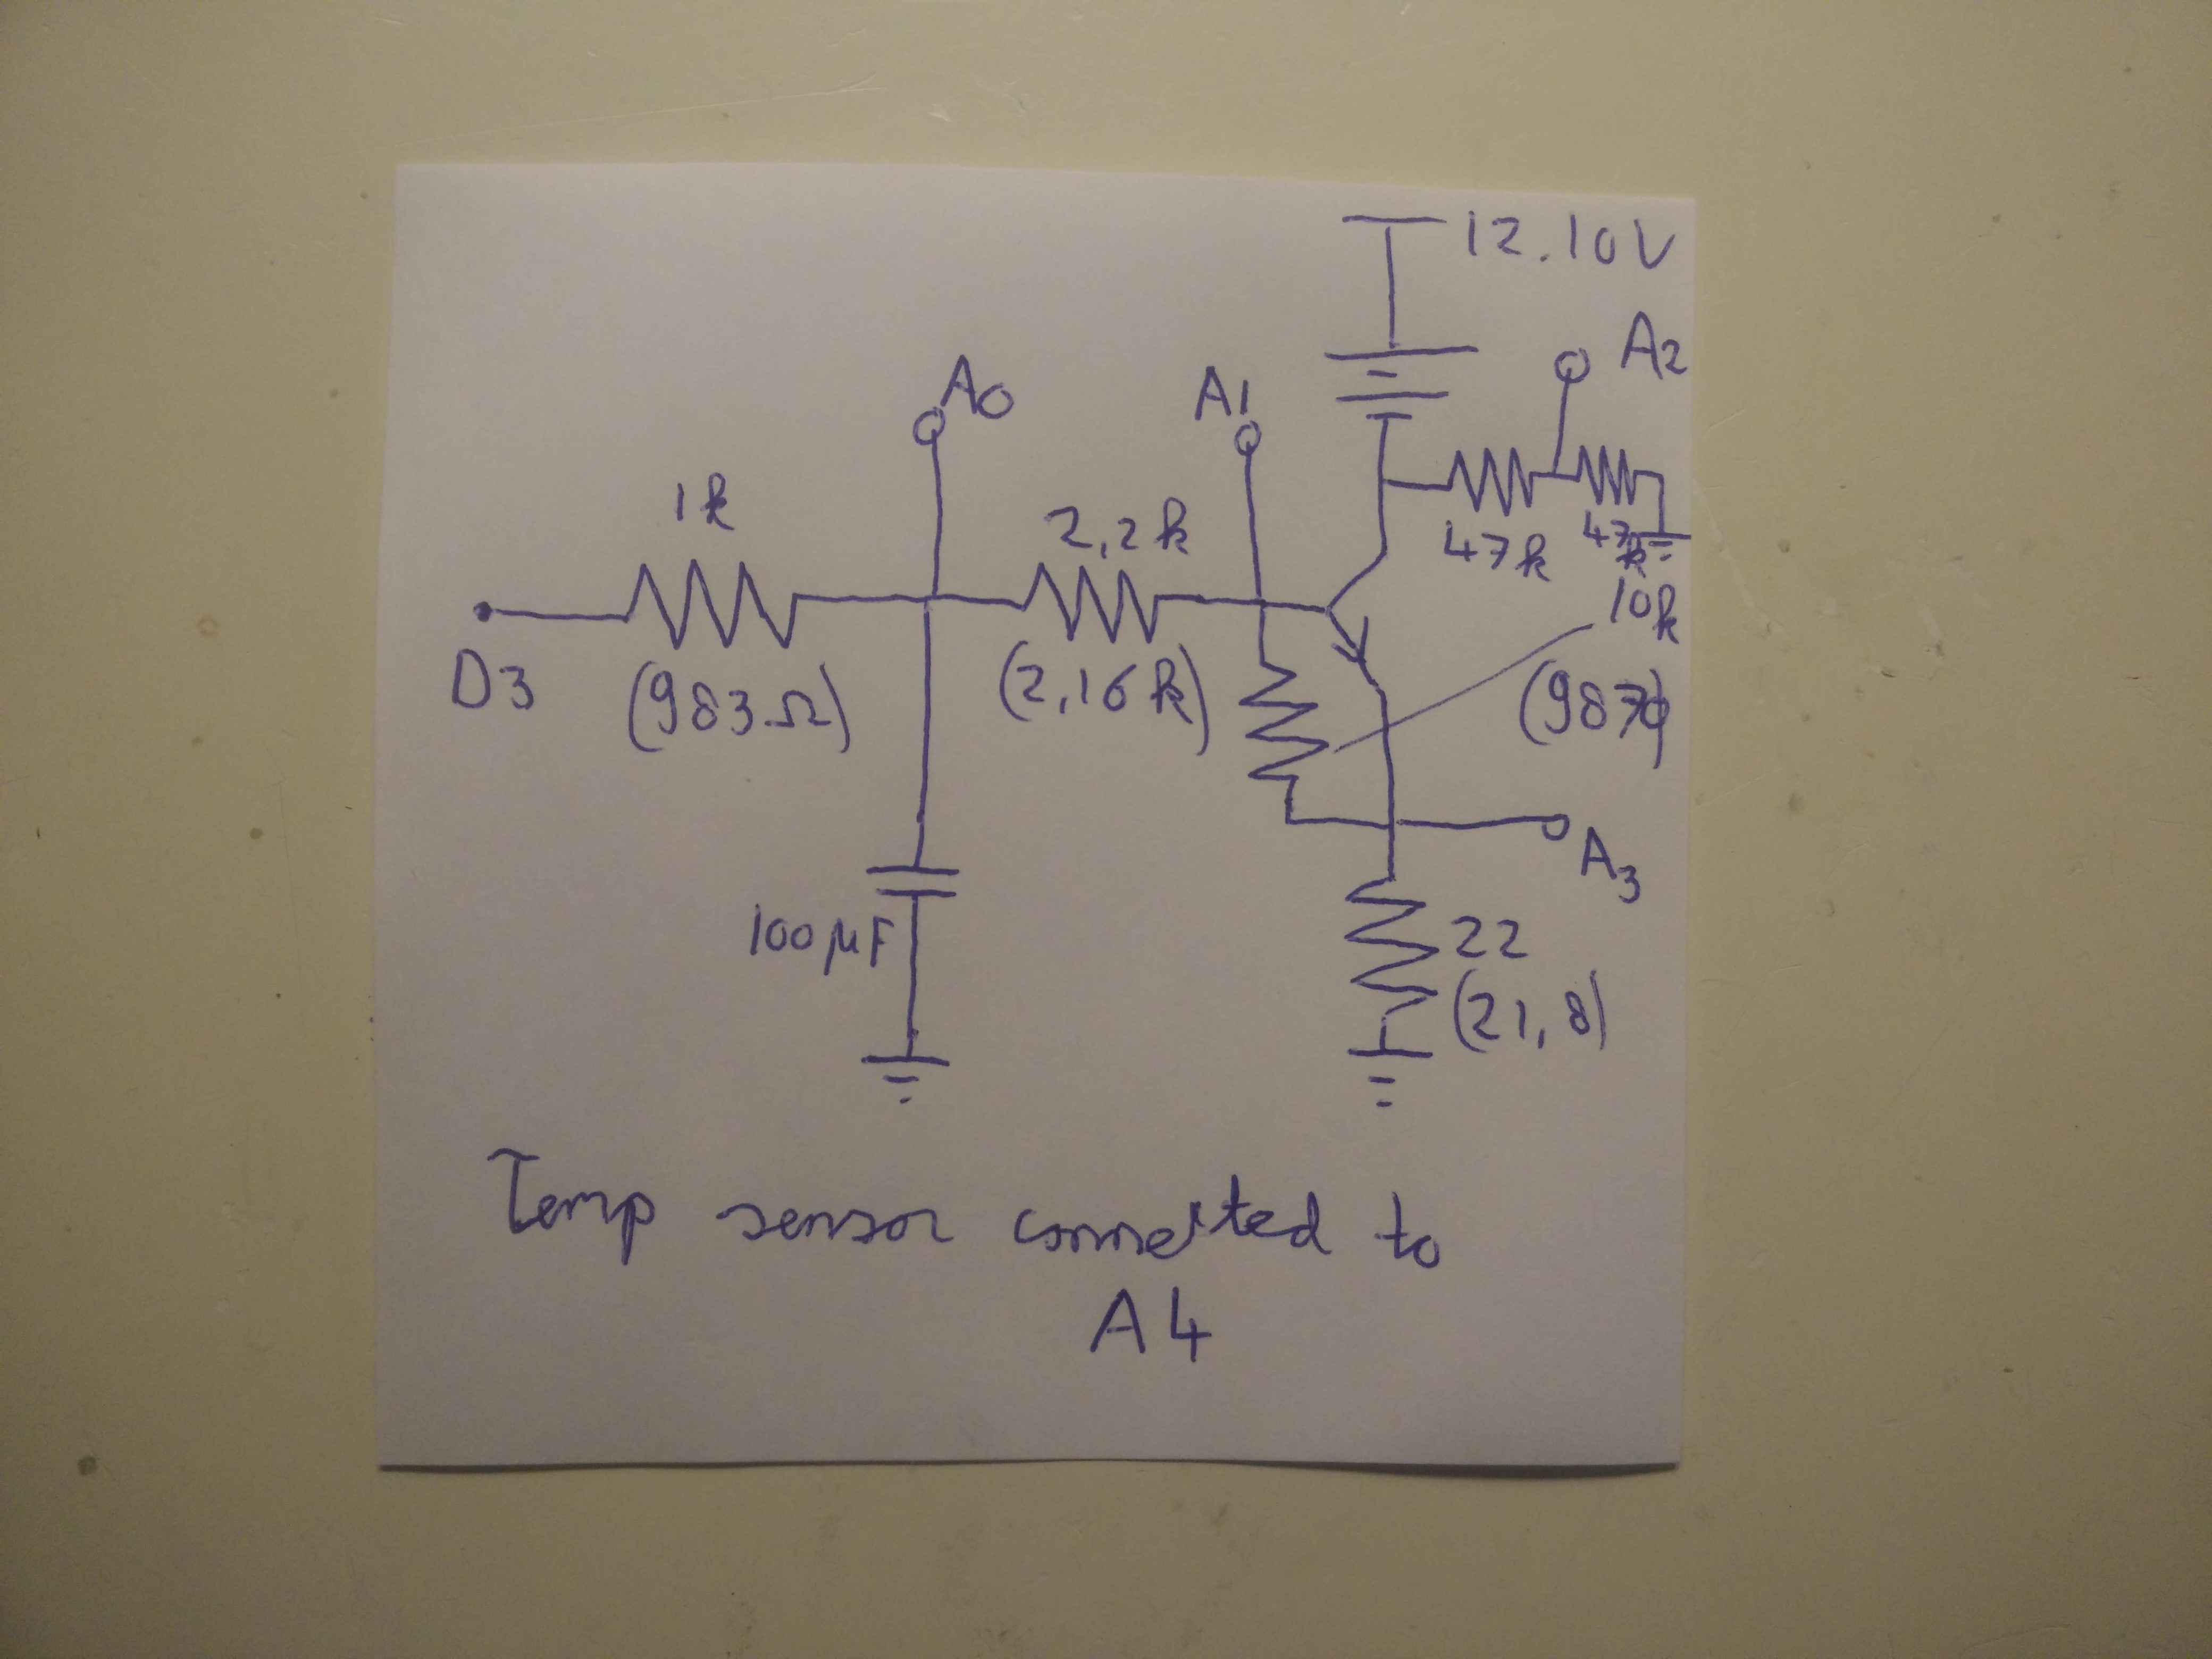 12.10V
A2
A0
A1
1k
2,2k
47k
47k
10k
D3
(983Ω)
(2,16k)
(9870)
A3
100µF
22
(21,8)
Temp sensor connected to
A4